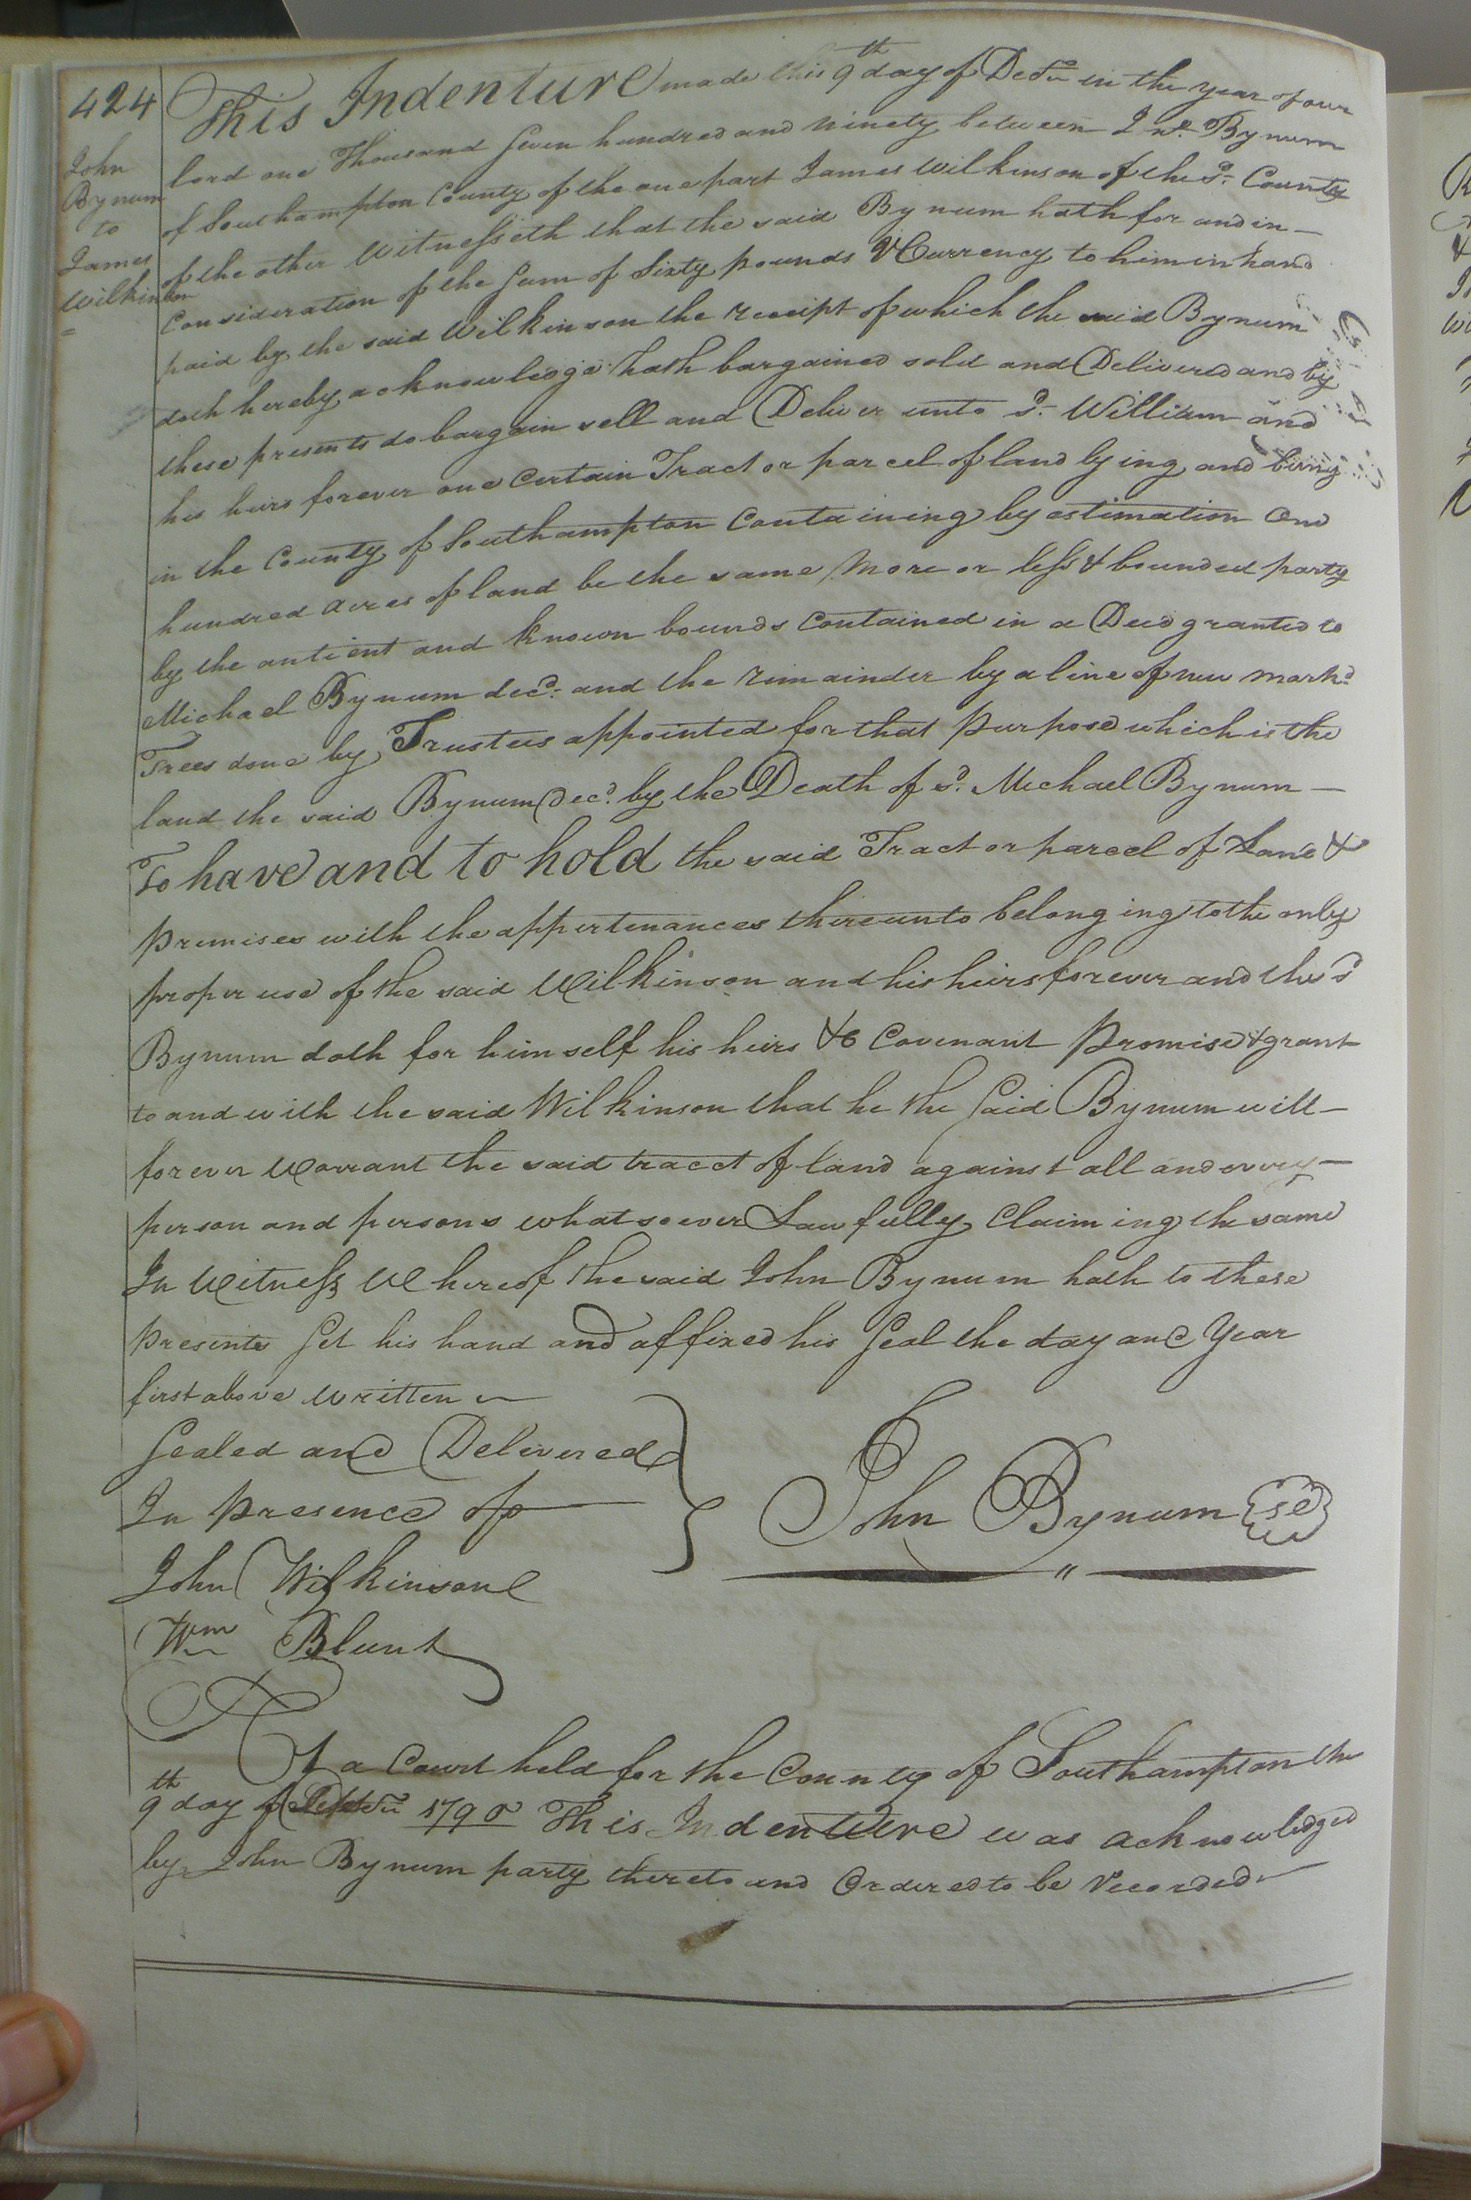 424
John
Bynum
to
James
Wilkinson
This Indenture made this 9th day of Decr in the year of our
lord one Thousand Seven hundred and ninety between Jno. Bynum
of Southampton County of the one part James Wilkinson of the sd. County
of the other Witnesseth that the said Bynum hath for and in
Consideration of the Sum of Sixty pounds V Currency to him in hand
paid by the said Wilkinson the receipt of which the said Bynum
doth hereby acknowledge hath bargained sold and Delivered and by
these presents do bargain sell and Deliver unto sd. William and
his heirs forever one Certain Tract or parcel of land lying and being
in the County of Southampton Containing by estimation One
hundred acres of land be the same More or less & bounded party
by the antient and known bounds Contained in a Deed granted to
Michael Bynum decd. and the remainder by a line of new markd
Trees done by Trustees appointed for that purpose which is the
land the said Bynum decd. by the Death of sd. Michael Bynum
To have and to hold the said Tract or parcel of Land &
premises with the appertenances thereunto belonging to the only
proper use of the said Wilkinson and his heirs forever and the sd
Bynum doth for himself his heirs &c Covenant Promise & grant
to and with the said Wilkinson that he the Said Bynum will
forever Warrant the said tracct of land against all and every
person and persons whatsoever Lawfully Claiming the same
In Witness Whereof the said John Bynum hath to these
presents Set his hand and affixed his Seal the day and Year
first above written
Sealed and Delivered
In presence of
John Bynum Se
John Wilkinson
Wm Blunt
At a Court held for the County of Southampton the
9th day of 1790 This Indenture was acknowledged
by John Bynum party thereto and Ordered to be Recorded